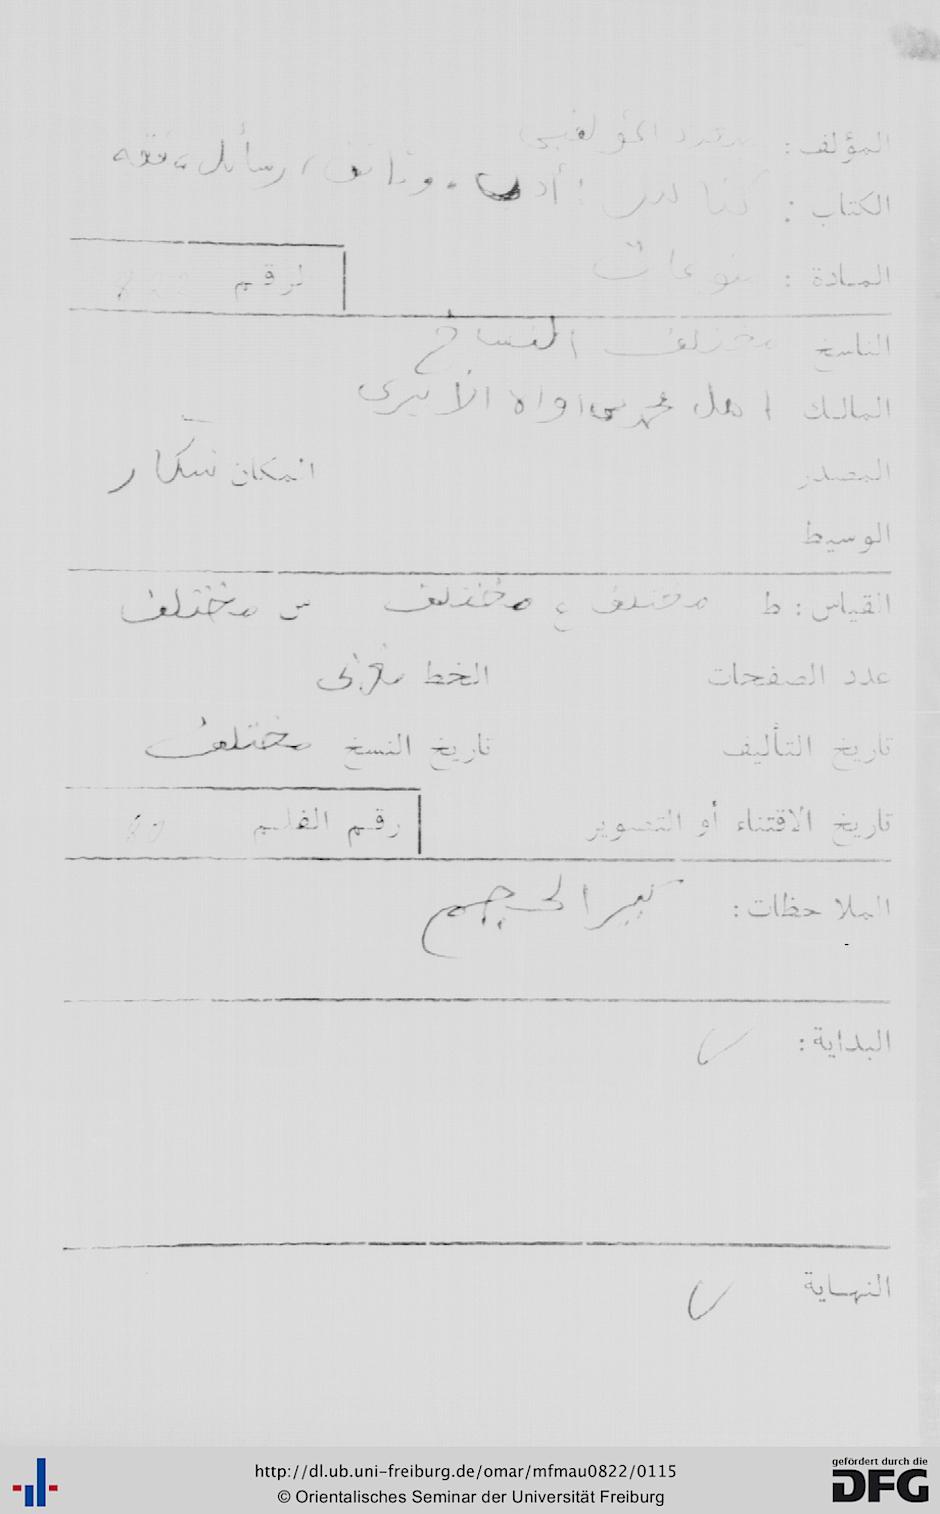 المؤلف: متعدد المؤلفين
الكتاب: كنانيش: أدب، وثائق، رسائل، فقه
المادة: منوعات
الرقم
الناسخ مختلف النساخ
المالك اهل محمد اواه الأبيري
المصدر المكان
الوسيط
القياس: ط مختلف ع مختلف س مختلف
عدد الصفحات الخط مغربي
تاريخ التأليف تاريخ النسخ مختلف
تاريخ الاقتناء أو التصوير رقم الفلم
الملاحظات: كبير الحجم
البداية:
النهاية
http://dl.ub.uni-freiburg.de/omar/mfmau0822/0115
© Orientalisches Seminar der Universität Freiburg
gefördert durch die
DFG